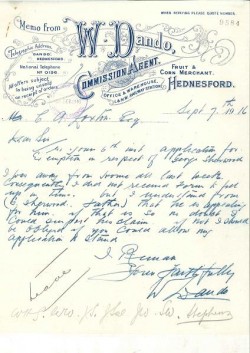 WHEN REPLYING PLEASE QUOTE NUMBER.
0584
Memo from W. Dando,
Telegraphic Address,
DANDO, HEDNESFORD.
National Telephone
No 0156
All offers subject to being unsold on receipt of orders.
COMMISSION AGENT.
OFFICE & WAREHOUSE,
LAND RAILWAY STATION
FRUIT & CORN MERCHANT.
HEDNESFORD.
Sept 7th 1916
Dear Sir
re yours 6th inst application for
Exemption in respect of George Sherwood
I was away from home all last week.
Consequently I did not receive form to get
up in time. but I understand from
(Sherwood, father) that he is applying
for him. if that is so no doubt I
could support his claim. but I should
be obliged if you could allow my
application to stand
I Remain
Yours faithfully
W Dando
Leave